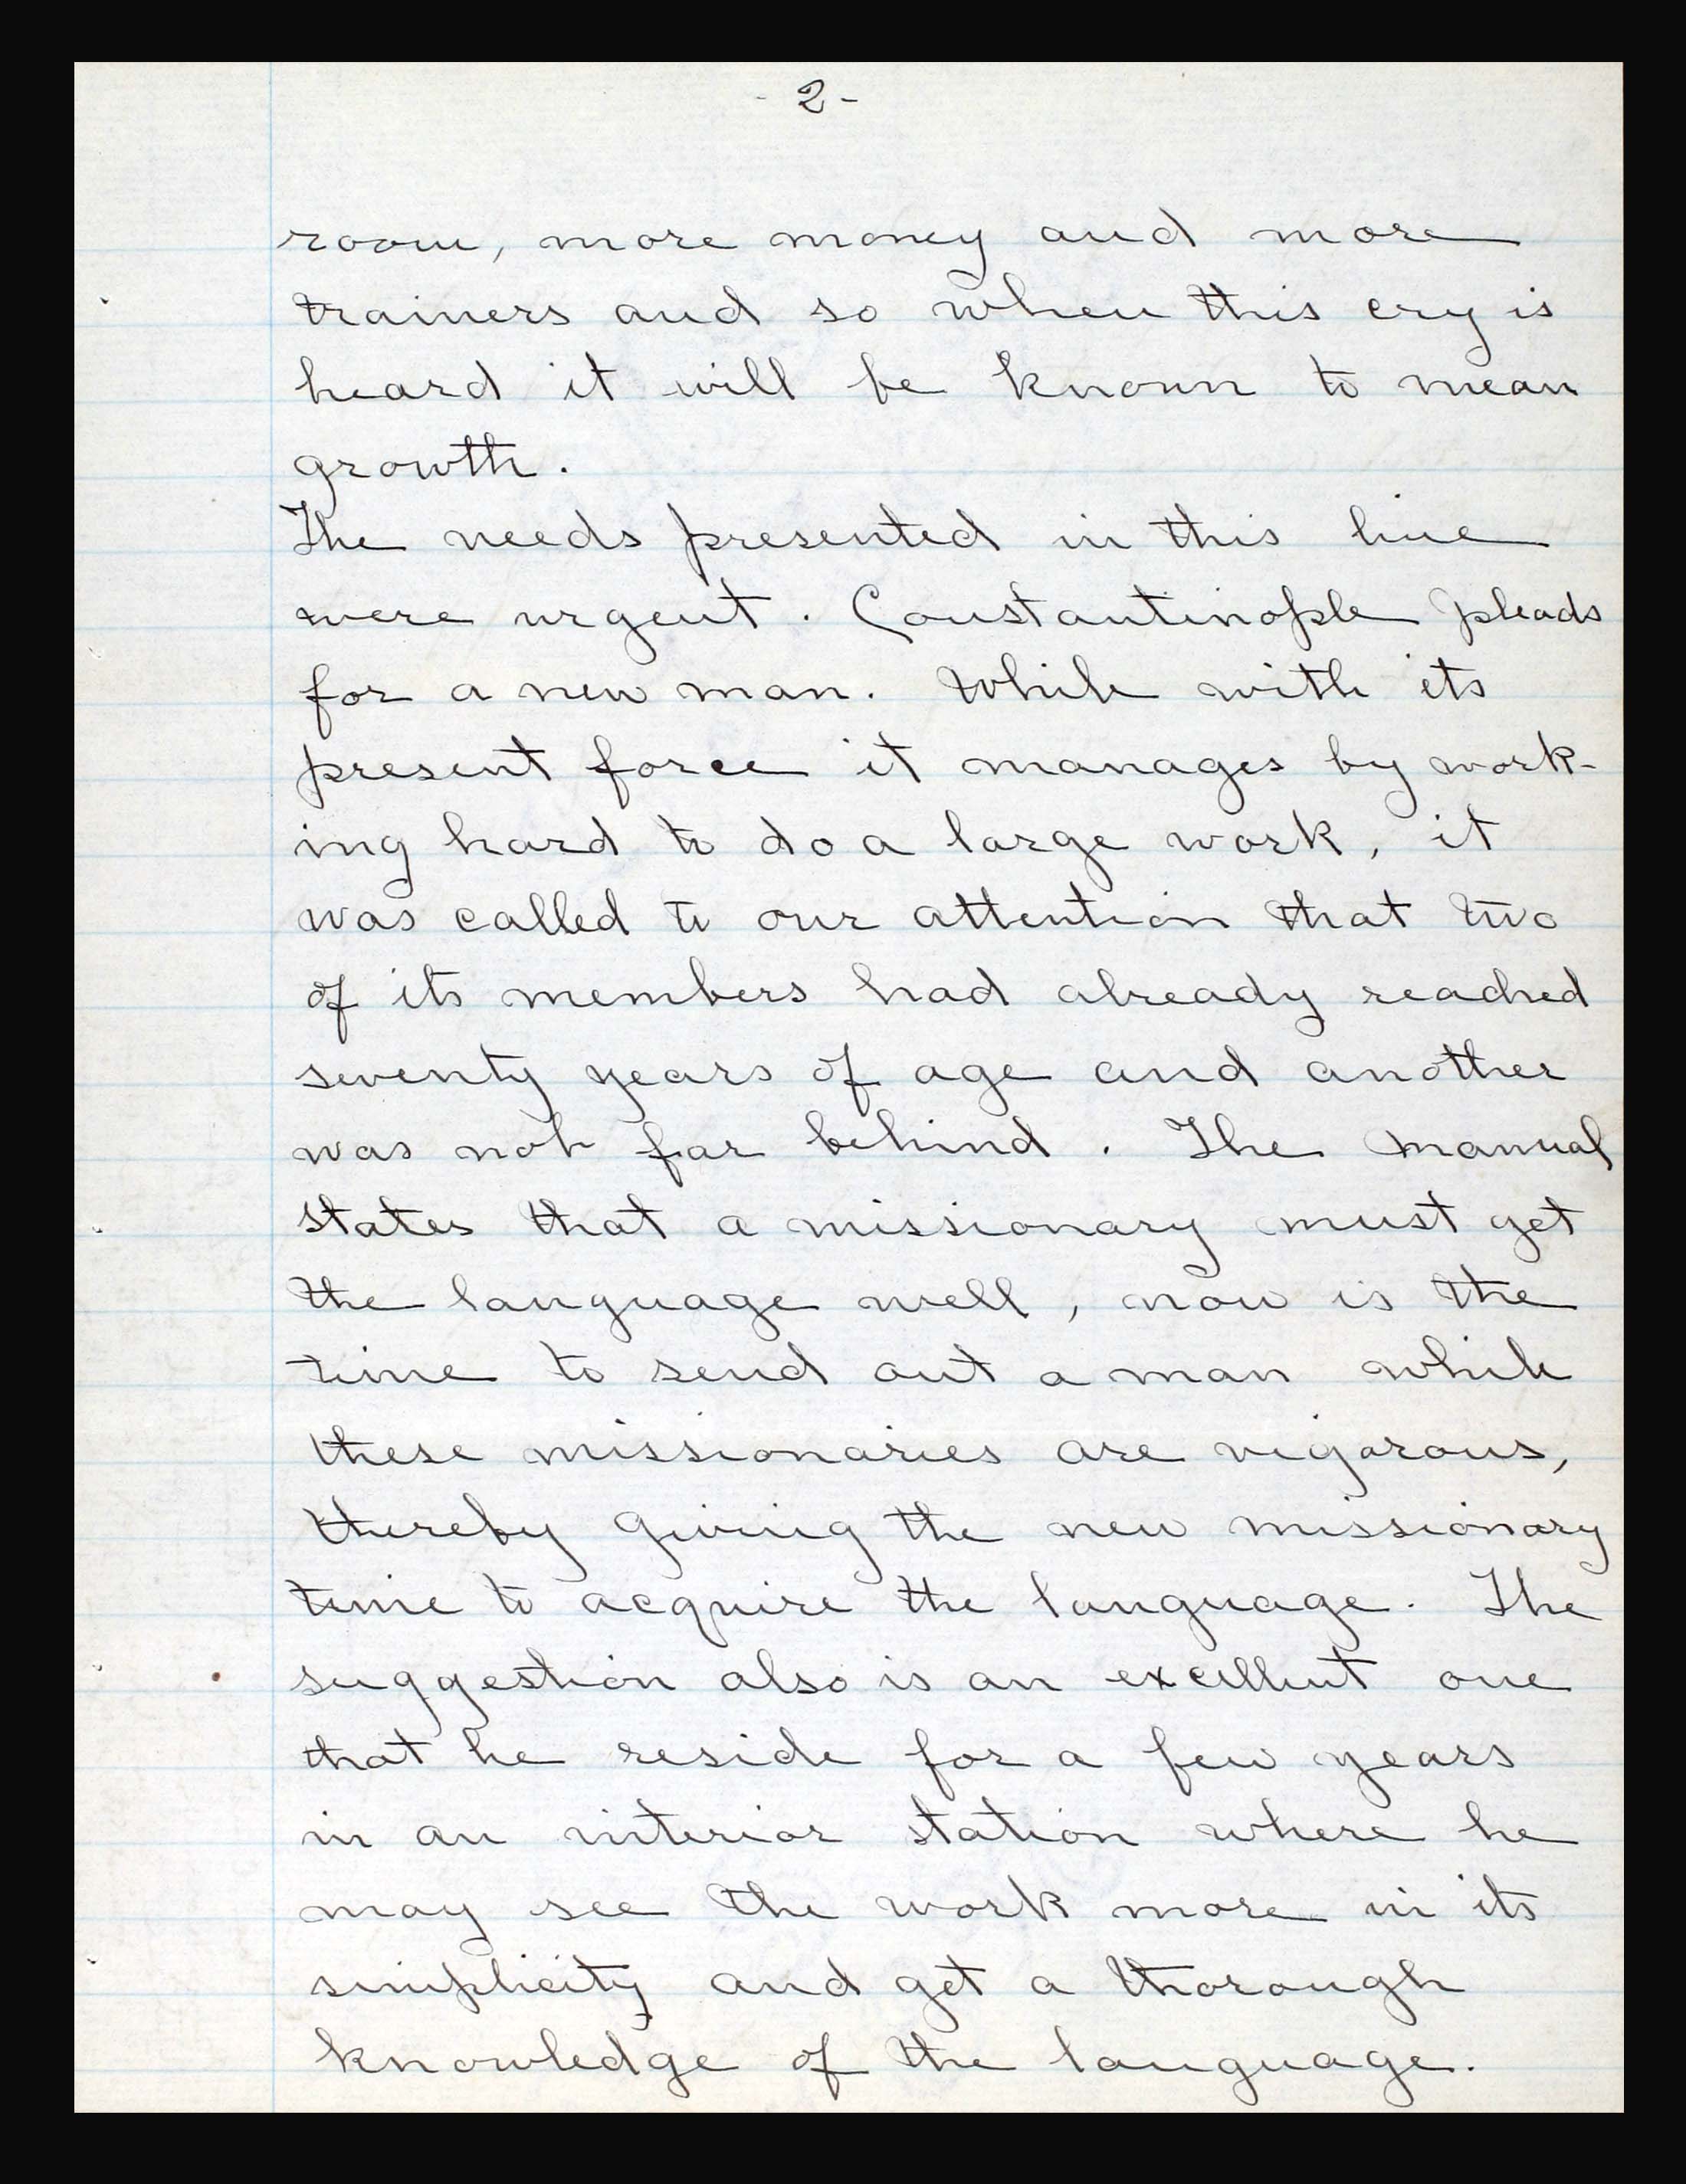 - 2 -
room, more money and more
trainers and so when this cry is
heard it will be known to mean
growth.
The needs presented in this line
were urgent. Constantinople pleads
for a new man. While with its
present force it manages by work-
ing hard to do a large work, it
was called to our attention that two
of its members had already reached
seventy years of age and another
was not far behind. The manual
states that a missionary must get
the language well, now is the
time to send out a man while
these missionaries are vigorous,
thereby giving the new missionary
time to acquire the language. The
suggestion also is an excellent one
that he reside for a few years
in an interior station where he
may see the work more in its
simplicity and get a thorough
knowledge of the language.